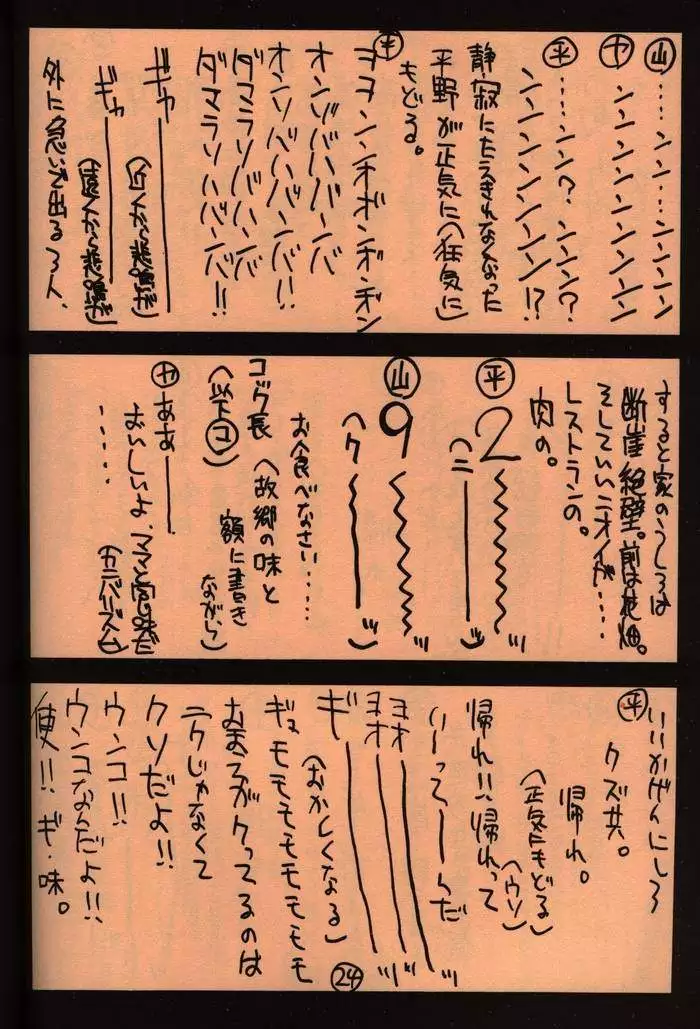 ㊤…ンン…ンンンンン
ヤ ンンンンンンンンン
平 …ンン?ンンン?
ンンンンンンンン!?
静寂にたえきれなくなった
平野が正気に(狂気に)
もどる。
平 ヨヨンンチボンギンギン
オンゾババーバ
オンソババーンバ!!
ダマラソババーンバ
ダマラソババーンバ!!
ギャ―――
(近くから悲鳴が)
ギャ―――
(遠くから悲鳴が)
外に急いで出る3人、
すると家のうしろは
断崖絶壁。前は花畑。
そしていいニオイが……
レストランの。
肉の。
平 2〰〰ッ
(ニ―――ッ)
山 9〰〰ッ
(ク〰〰ッ)
お食べなさい……
コック長(故郷の味と
額に書き
ながら)
(以下コ)
ヤ ああ―――
おいしいよ、ママと宮の味だ
……
(カニバリズム)
平 いいかげんにしろ
クズ共。
帰れ。
(正気にもどる)
(ウソ)
帰れ!!帰れって
い―って――んだ
ヨオ―――ッ
ヨオ―――ッ
ギ―――ッ
(おかしくなる)
ギュモモモモモモモモ
おまえがクってるのは
ニクじゃなくて
クソだよ!!
ウンコ!!
ウンコなんだよ!!
便!!ギ・味。
24